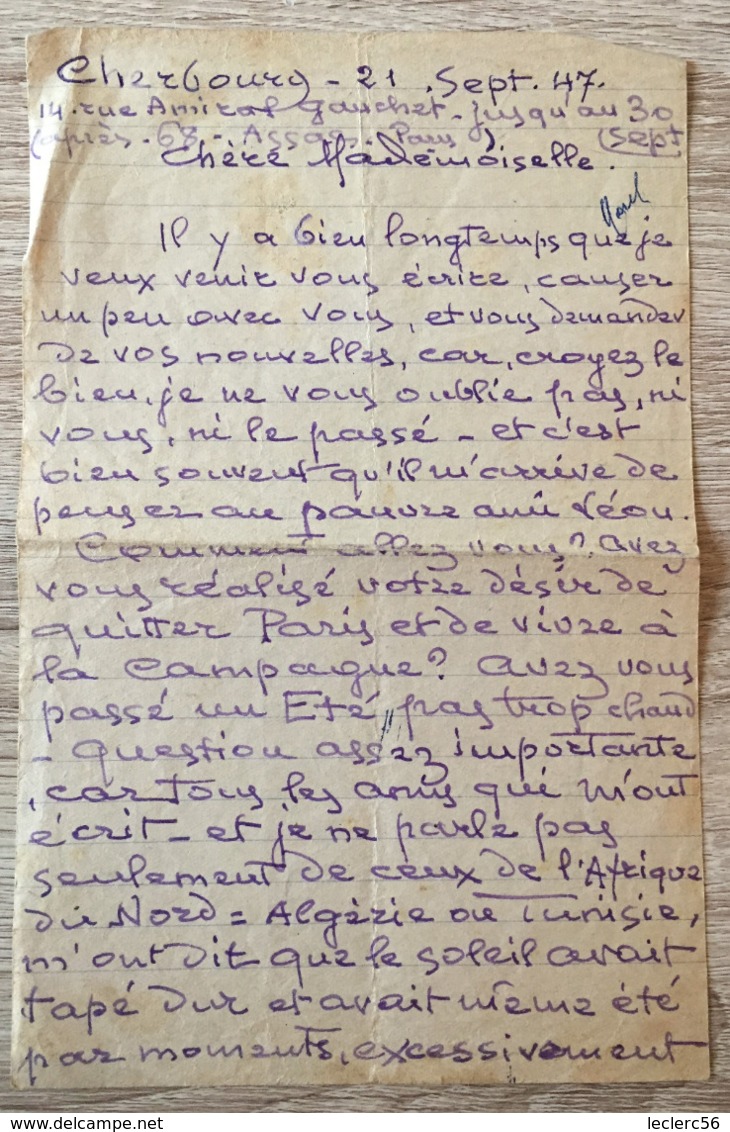 Cherbourg - 21. Sept. 47.
14. rue Amiral Gauchet - jusqu'au 30
(après. 68 - Assas. Paris) (Sept
Chère Mademoiselle.
Il y a bien longtemps que je
veux venir vous écrire, causer
un peu avec vous, et vous demander
de vos nouvelles, car, croyez le
bien, je ne vous oublie pas, ni
vous, ni le passé - et c'est
bien souvent qu'il m'arrive de
penser au pauvre ami Léon.
Comment allez vous? Avez
vous réalisé votre désir de
quitter Paris et de vivre à
la campagne? Avez vous
passé un Eté "pas trop chaud
- question assez importante
, car tous les amis qui m'ont
écrit - et je ne parle pas
seulement de ceux de l'Afrique
du Nord = Algérie ou Tunisie,
m'ont dit que le soleil avait
tapé dur et avait même été
par moments, excessivement
leclerc56